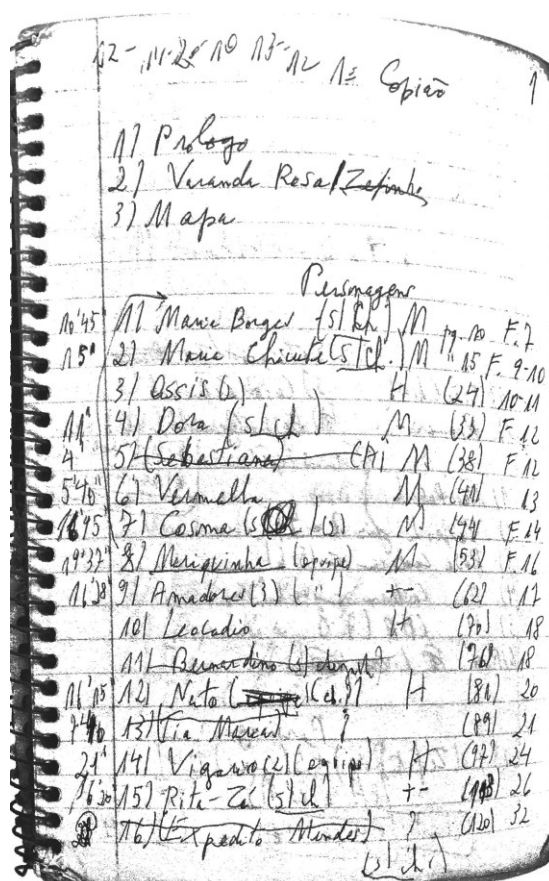 12- 11-20 10 13-12 1º Copião 1
1) Prologo
2) Varanda Rosa/Zefinha
3) Mapa
Personagens
10'45" 1) Maria Borges (s/ch) M pg. 10 F.7
15" 2) Maria Chicute (s/ch.) M " 15 F. 9-10
3) Assis (2) H (24) 10-11
11' 4) Dora (s/ch) M (33) F 12
4' 5) (Sebastiana) M (38) F 12
5'40" 6) Vermelha M (41) 13
7) Cosma M (44) F.14
19'37" 8) Mariquinha (equipe) M (53) F.16
16'38 9) Amadores (3) ( " ) +- (62) 17
10) Leocadio H (70) 18
11) Bernardino (76) 18
12) Nato (ch.) H (81) 20
13) (Tia Marca) ? (89) 21
21' 14) Vigario (2) (equipe) H (97) 24
15) Rita-Zé (s/ch) +- 26
16) (Expedito Mendes) ? (120) 32
(s/ch.)